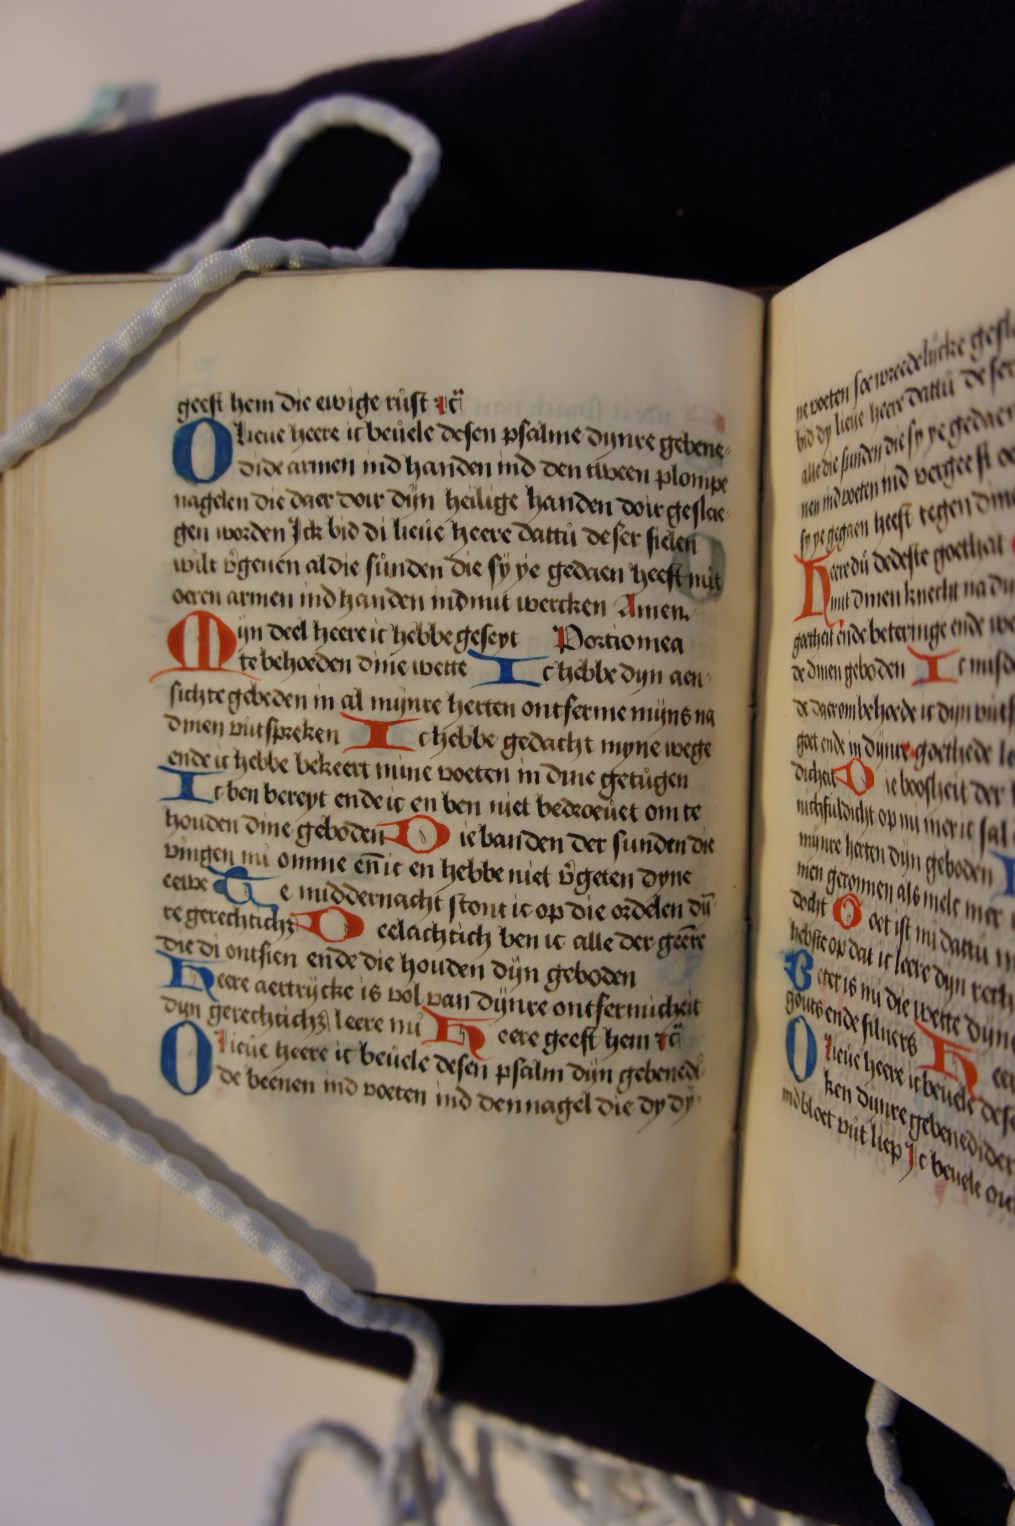 geeft hem die ewige rust ⁊c̃
O lieue heere ic beuele desen psalme dynre gebene-
dide armen ind handen ind den tween plompe
nagelen die daer doir dyn heilige handen doir geslae
gen worden Ick bid di lieue heere dattu deser sielen
wilt v̉geuen al die sunden die sy ye gedaen heeft mit
oeren armen ind handen ind mit wercken Amen.
Mijn deel heere ic hebbe geseyt Portio mea
te behoeden dine wette Ic hebbe dyn aen-
sichte gebeden in al mynre herten ontferme myns na
dinen uutspreken Ic hebbe gedacht myne wege
ende ic hebbe bekeert mine voeten in dine getugen
Ic ben bereyt ende ic en ben niet bedroeuet om te
houden dine geboden Die banden der sunden die
vingen mi omme en̄ ic en hebbe niet v̉geten dyne
eewe Te middernacht stont ic op die ordelen dij
re gerechtich Deelachtich ben ic alle der geere
die di ontsien ende die houden dijn geboden
Heere aertrycke is vol van dynre ontfermicheit
dyn gerechtich leere mi Heere geeft hem ⁊c̃
O lieue heere ic beuele desen psalm dyn gebenedi
de beenen ind voeten ind den nagel die dy dy
ne voeten soe wreedelicke gesla
bid dy lieue heere dattu deser
alle die sunden die sy ye gedaen
nen ind voeten ind vergeeft
sy ye gegaen heeft tegen dine
Heere du dedeste goethat
mit dinen knecht na
goethat ende beteringe ende
de dinen geboden Ic misd
de daerom behoede ic dyn
goet ende in dynre goethede
dicheit Die boosheit der
nichfuldicht op mi mer ic sal
mynre herten dyn geboden
men geronnen als melc mer
docht Goet ist mi dattu
op dat ic leere dyn
Beter is mi die wette dyn
gouts ende siluers Hee
O lieue heere ic beuele des
ken dynre gebenedider
ind bloet uut liep Ic beuele